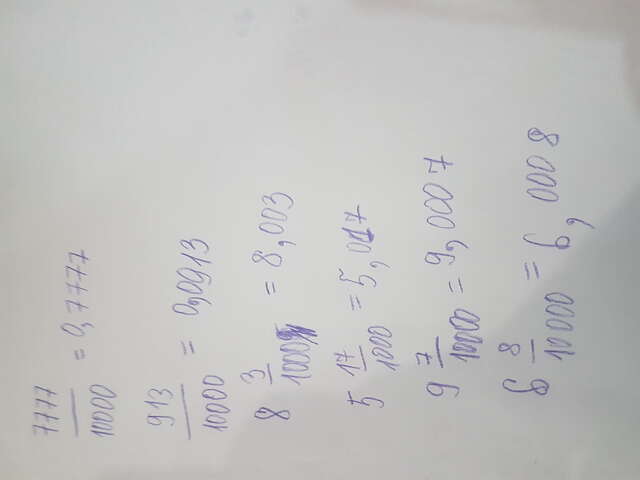 7777/10000 = 0,7777
913/10000 = 0,0913
8 3/1000 = 8,003
5 17/1000 = 5,017
9 7/10000 = 9,0007
6 8/10000 = 6,0008